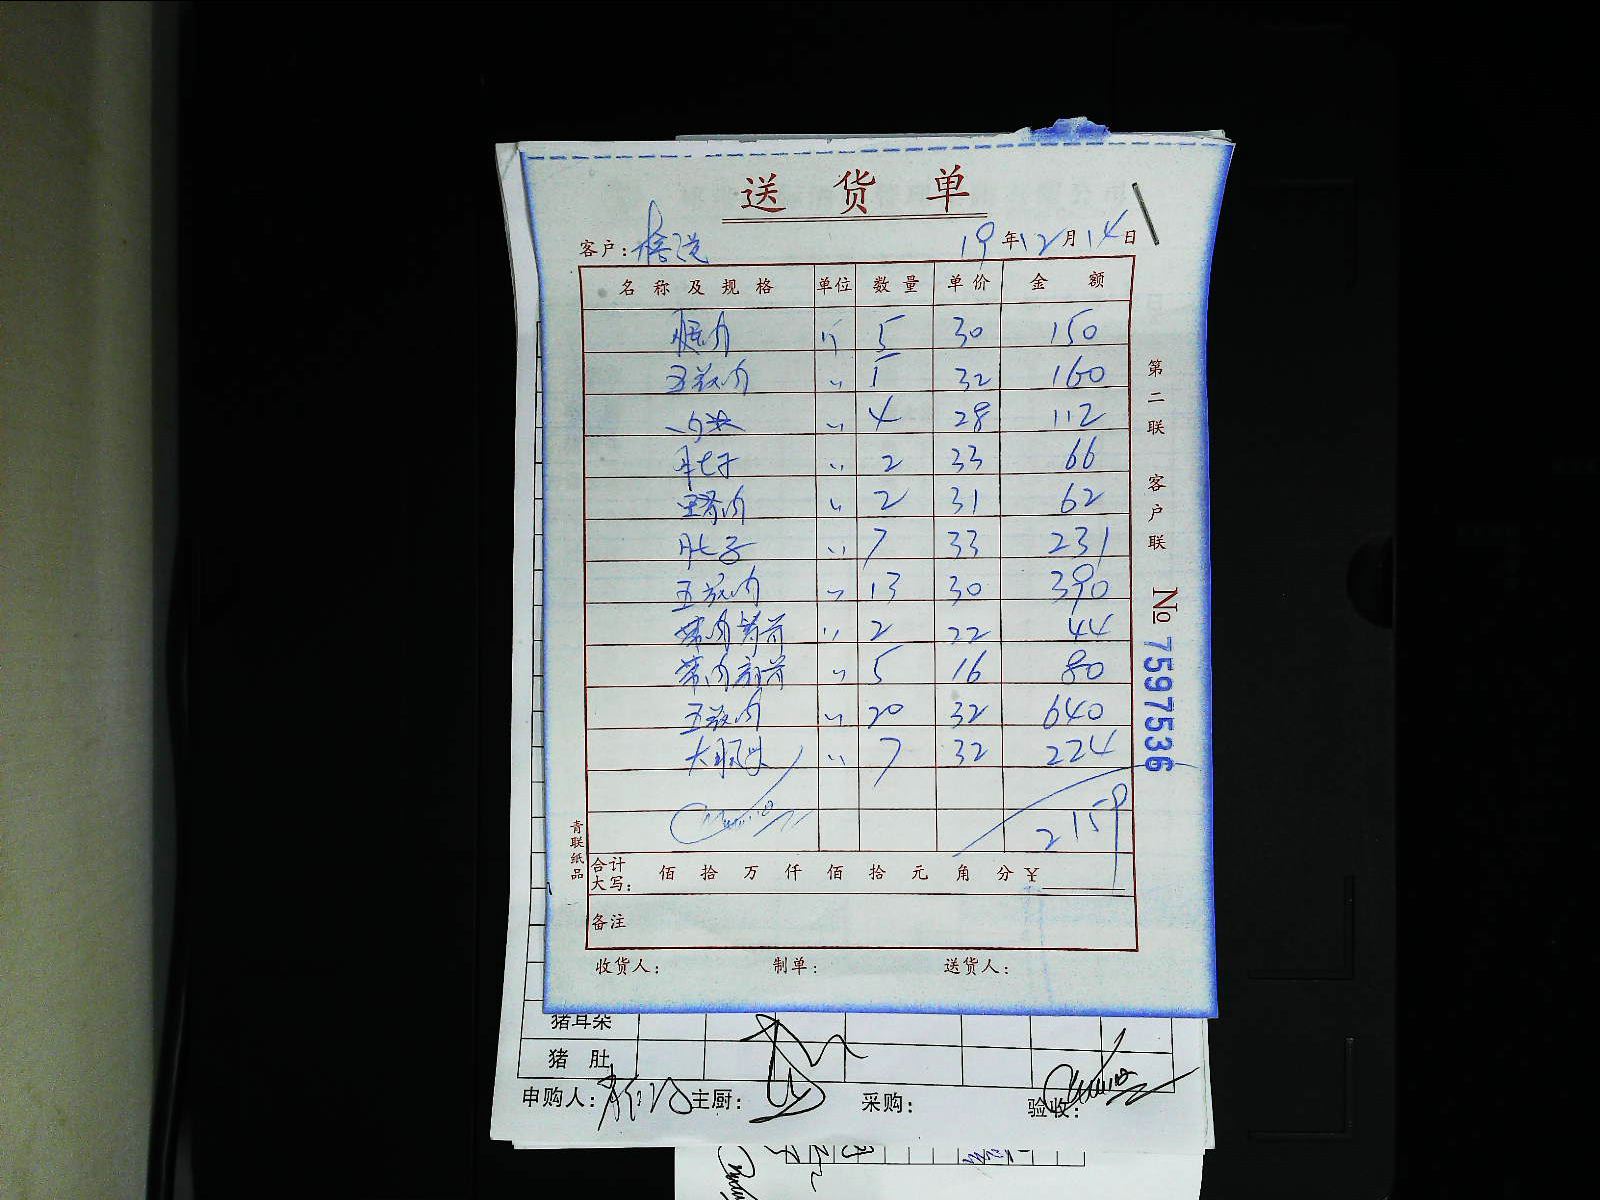 送货单
客户: 19年12月14日
名称及规格 单位 数量 单价 金额
腿肉 斤 5 30 150
五花肉 〃 5 32 160
〃 4 28 112
肚子 〃 2 33 66
里脊肉 〃 2 31 62
肚子 〃 7 33 231
五花肉 〃 13 30 390
带肉脊骨 〃 2 22 44
带肉 〃 5 16 80
五花肉 〃 20 32 640
大 〃 7 32 224
2159
合计大写: 佰 拾 万 仟 佰 拾 元 角 分 ¥
备注
收货人: 制单: 送货人:
第二联 客户联
№ 7597536
青联纸品
猪耳朵
猪 肚
申购人: 主厨: 采购: 验收: